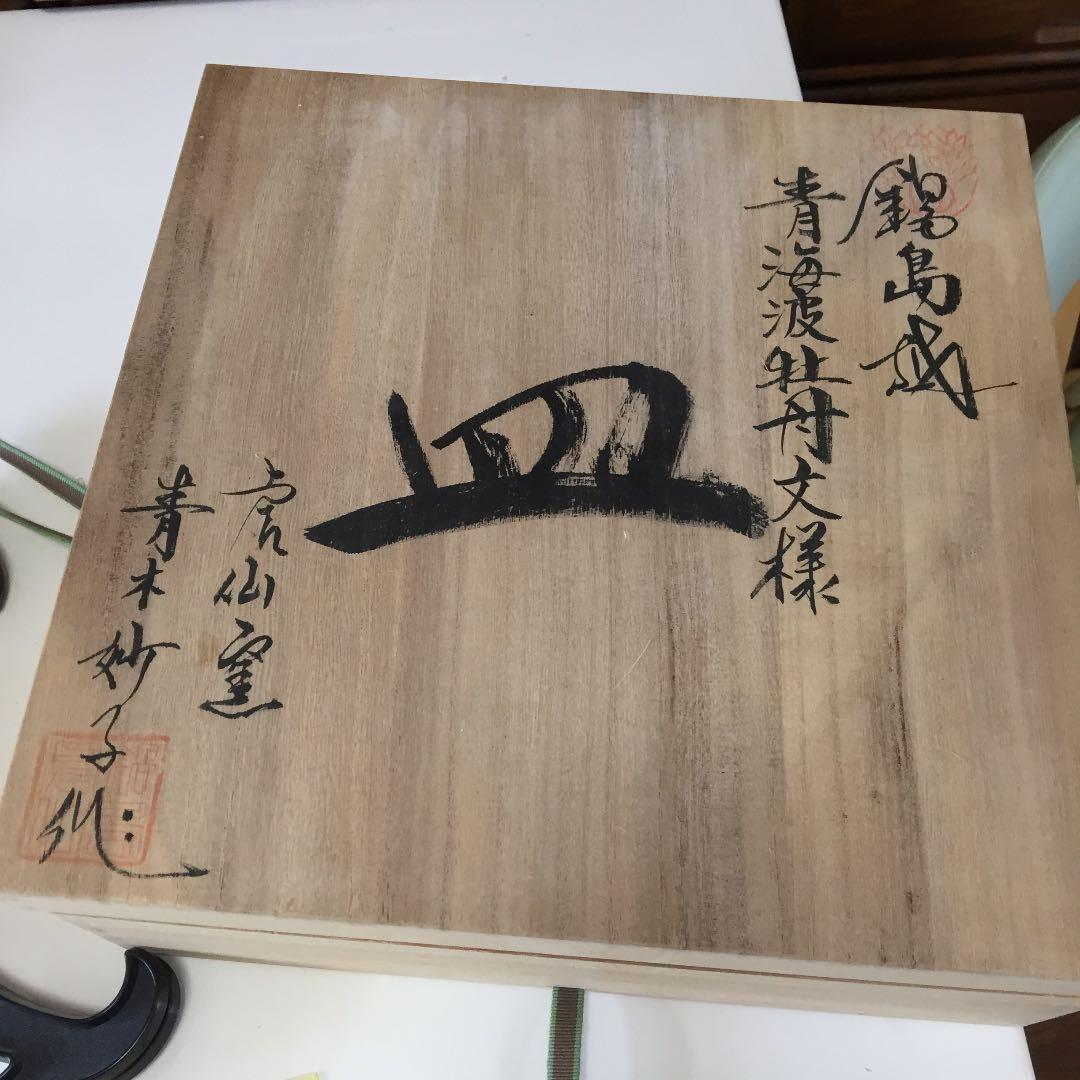 鍋島
青海波牡丹文様
皿
虎仙窯
青木妙子